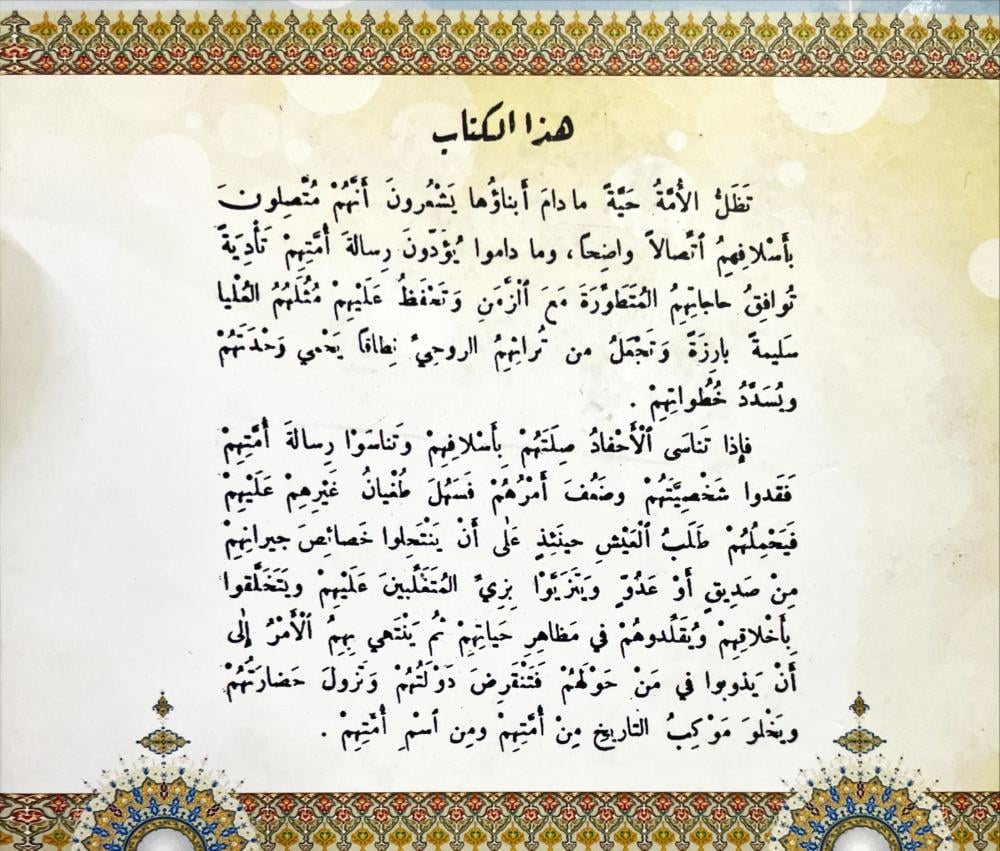 هذا الكتاب
تَظَلُّ الأُمَّةُ حَيَّةً ما دامَ أَبناؤُها يَشْعُرونَ أَنَّهُمْ مُتَّصِلونَ
بأَسْلافِهِمُ ٱتِّصالاً واضِحاً، وما داموا يُؤَدّونَ رِسالةَ أُمَّتِهِمْ تَأْدِيَةً
تُوافِقُ حاجاتِهِمُ المُتَطَوِّرَةَ مَعَ ٱلزَّمَنِ وَتَحْفَظُ عَلَيْهِمْ مُثُلَهُمُ العُلْيا
سَليمةً بارِزَةً وَتَجْعَلُ من تُراثِهِمُ الروحِيِّ نِطاقاً يَحْمي وَحْدَتَهُمْ
ويُسَدِّدُ خُطُواتِهِمْ .
فإِذا تَناسَى ٱلْأَحْفادُ صِلَتَهُمْ بِأَسْلافِهِمْ وَتَناسَوْا رِسالةَ أُمَّتِهِمْ
فَقَدوا شَخْصِيَّتَهُمْ وضَعُفَ أَمْرُهُمْ فَسَهُلَ طُغْيانُ غَيْرِهِمْ عَلَيْهِمْ
فَيَحْمِلُهُمْ طَلَبُ ٱلْعَيْشِ حينَئِذٍ عَلى أَنْ يَنْتَحِلوا خَصائِصَ جيرانِهِمْ
مِنْ صَديقٍ أَوْ عَدُوٍّ وَيَتَزَيَّوْا بِزِيِّ المُتَغَلِّبينَ عَلَيْهِمْ ويَتَخَلَّقوا
بِأَخْلاقِهِمْ وَيُقَلِّدوهُمْ في مَظاهِرِ حَياتِهِمْ ثُمَّ يَنْتَهي بِهِمُ ٱلْأَمْرُ إِلى
أَنْ يَذوبوا في مَنْ حَوْلَهُمْ فَتَنْقَرِضَ دَوْلَتُهُمْ وَتَزولَ حَضارَتُهُمْ
ويَخْلوَ مَوْكِبُ التاريخِ مِنْ أُمَّتِهِمْ ومِنِ ٱسْمِ أُمَّتِهِمْ .